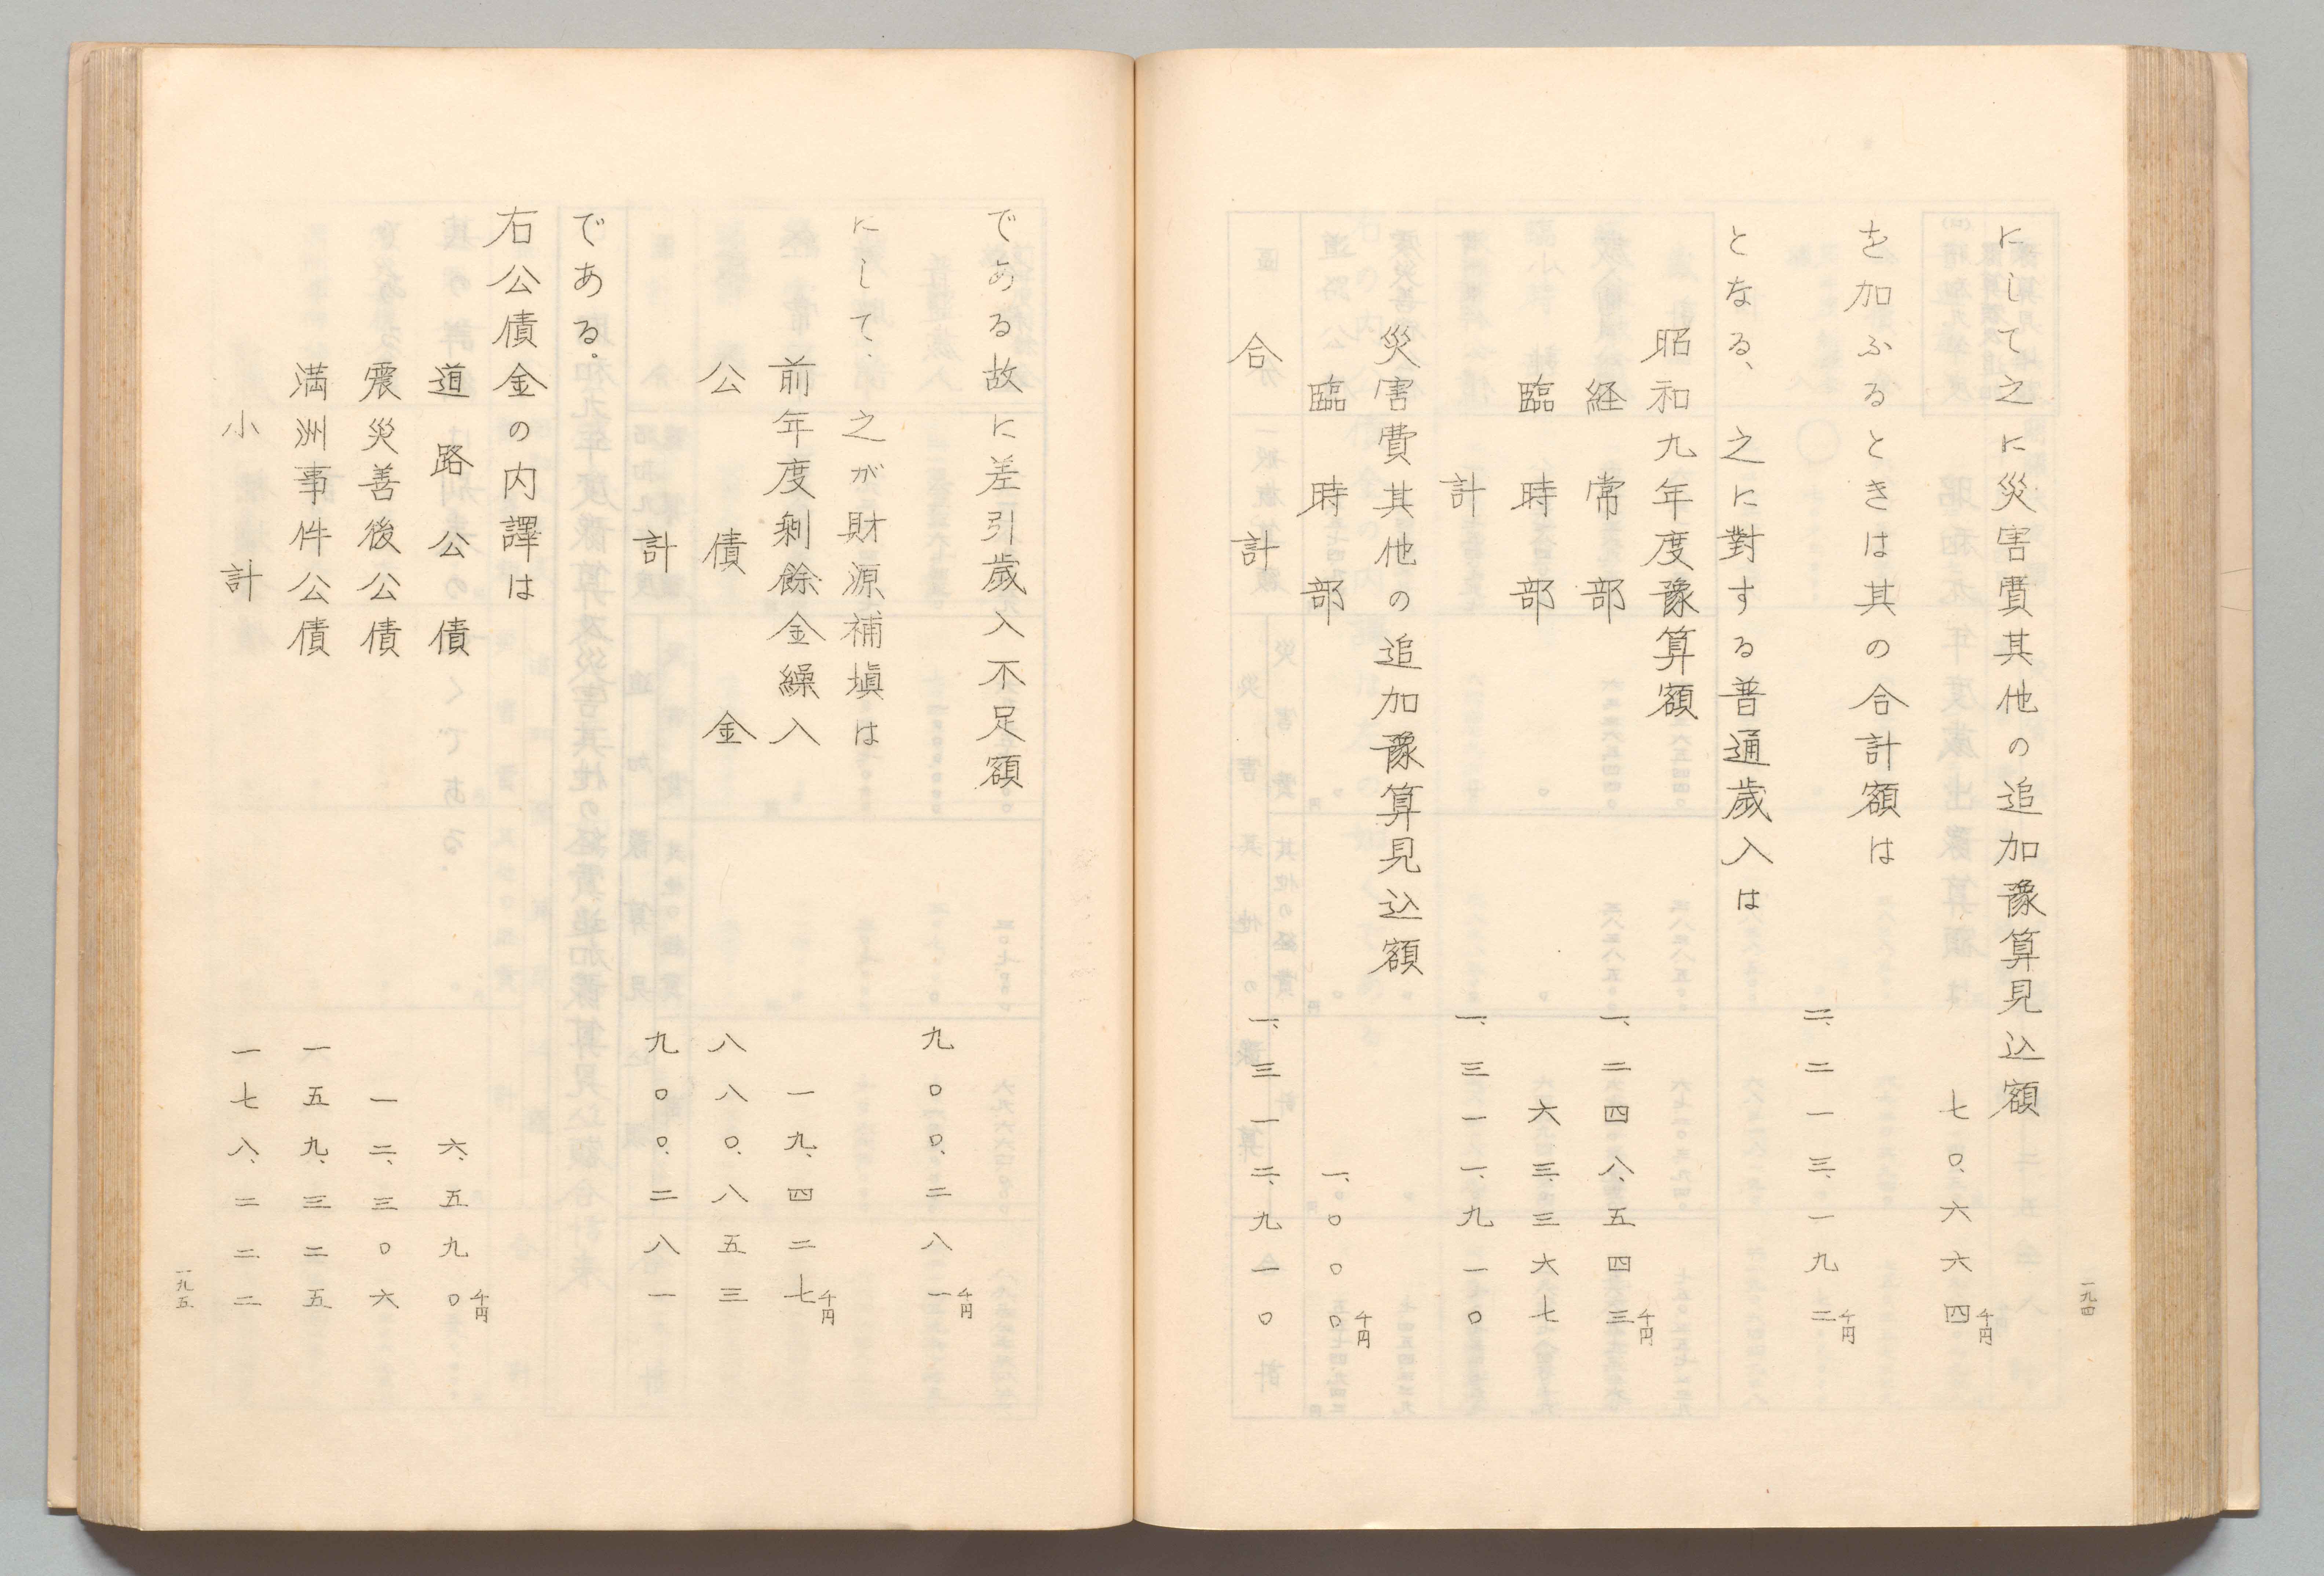 にして之に災害費其他の追加豫算見込額
七〇、六六四千円
を加ふるときは其の合計額は
二、二一三、一九二千円
となる、之に對する普通歳入は
昭和九年度豫算額
経常部 一、二四八、五四三千円
臨時部 六三、三六七
計 一、三一一、九一〇
災害費其他の追加豫算見込額
臨時部 一、〇〇〇千円
合計 一、三一二、九一〇
一九四
である故に差引歳入不足額
九〇〇、二八一千円
にして、之が財源補塡は
前年度剰餘金繰入 一九、四二七千円
公債金 八八〇、八五三
計 九〇〇、二八一
である。
右公債金の内譯は
道路公債 六、五九〇千円
震災善後公債 一二、三〇六
満洲事件公債 一五九、三二五
小計 一七八、二二二
一九五